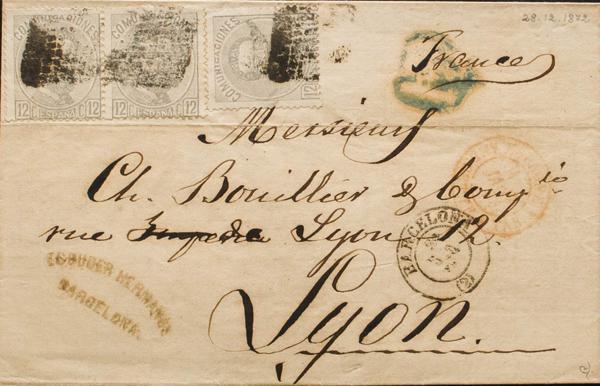 COMUNICACIONES COMUNICACIONES COMUNICACIONES
12 C. ESPAÑA C. 12 12 C. ESPAÑA C. 12 12
28.12.1872
France
Messieurs
Ch. Bouillier & Comp io
rue Lyon 12.
BARCELONA
(2)
HERMANOS
BARCELONA.
Lyon.